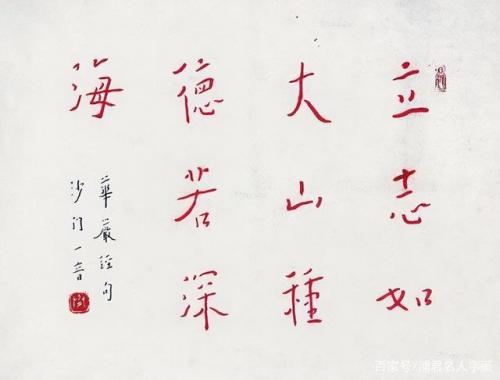 立志如
大山種
德若深
海
華嚴經句
沙门一音
百家号/浦君名人字画